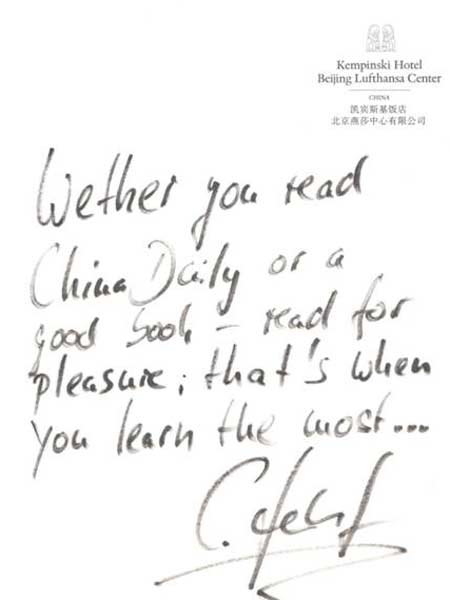 Kempinski Hotel
Beijing Lufthansa Center
CHINA
凯宾斯基饭店
北京燕莎中心有限公司
Wether you read
China Daily or a
good book – read for
pleasure; that's when
you learn the most...